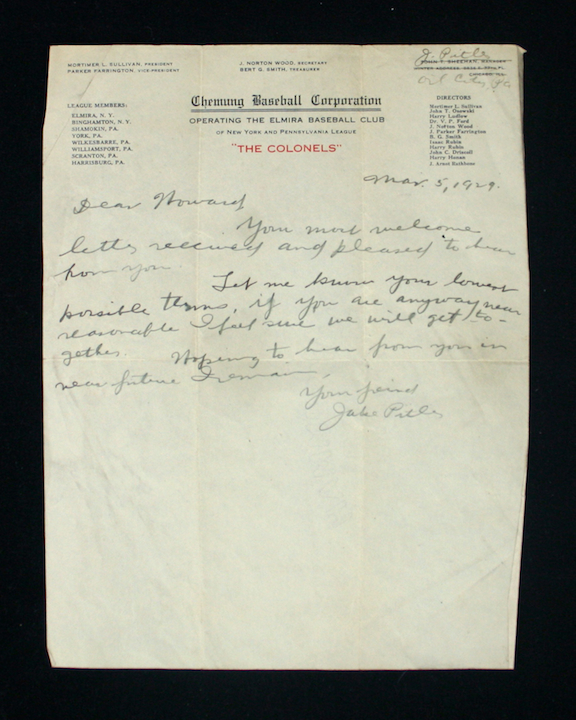 MORTIMER L. SULLIVAN, PRESIDENT
PARKER FARRINGTON, VICE-PRESIDENT
J. NORTON WOOD, SECRETARY
BERT G. SMITH, TREASURER
J. Pitler
JOHN T. SHEEHAN, MANAGER
Oil City Pa
CHICAGO, ILL.
LEAGUE MEMBERS:
ELMIRA, N. Y.
BINGHAMTON, N. Y.
SHAMOKIN, PA.
YORK, PA.
WILKESBARRE, PA.
WILLIAMSPORT, PA.
SCRANTON, PA.
HARRISBURG, PA.
Chemung Baseball Corporation
OPERATING THE ELMIRA BASEBALL CLUB
OF NEW YORK AND PENNSYLVANIA LEAGUE
"THE COLONELS"
DIRECTORS
Mortimer L. Sullivan
John T. Osowski
Harry Ludlow
Dr. V. P. Ford
J. Norton Wood
J. Parker Farrington
B. G. Smith
Isaac Rubin
Harry Rubin
John C. Driscoll
Harry Honan
J. Arnot Rathbone
Mar. 5, 1929.
Dear Howard
Your most welcome
letter received and pleased to hear
from you.
Let me know your lowest
possible terms, if you are anyway near
reasonable I feel sure we will get to-
gether. Hopeing to hear from you in
near future I remain,
Your freind
Jake Pitler